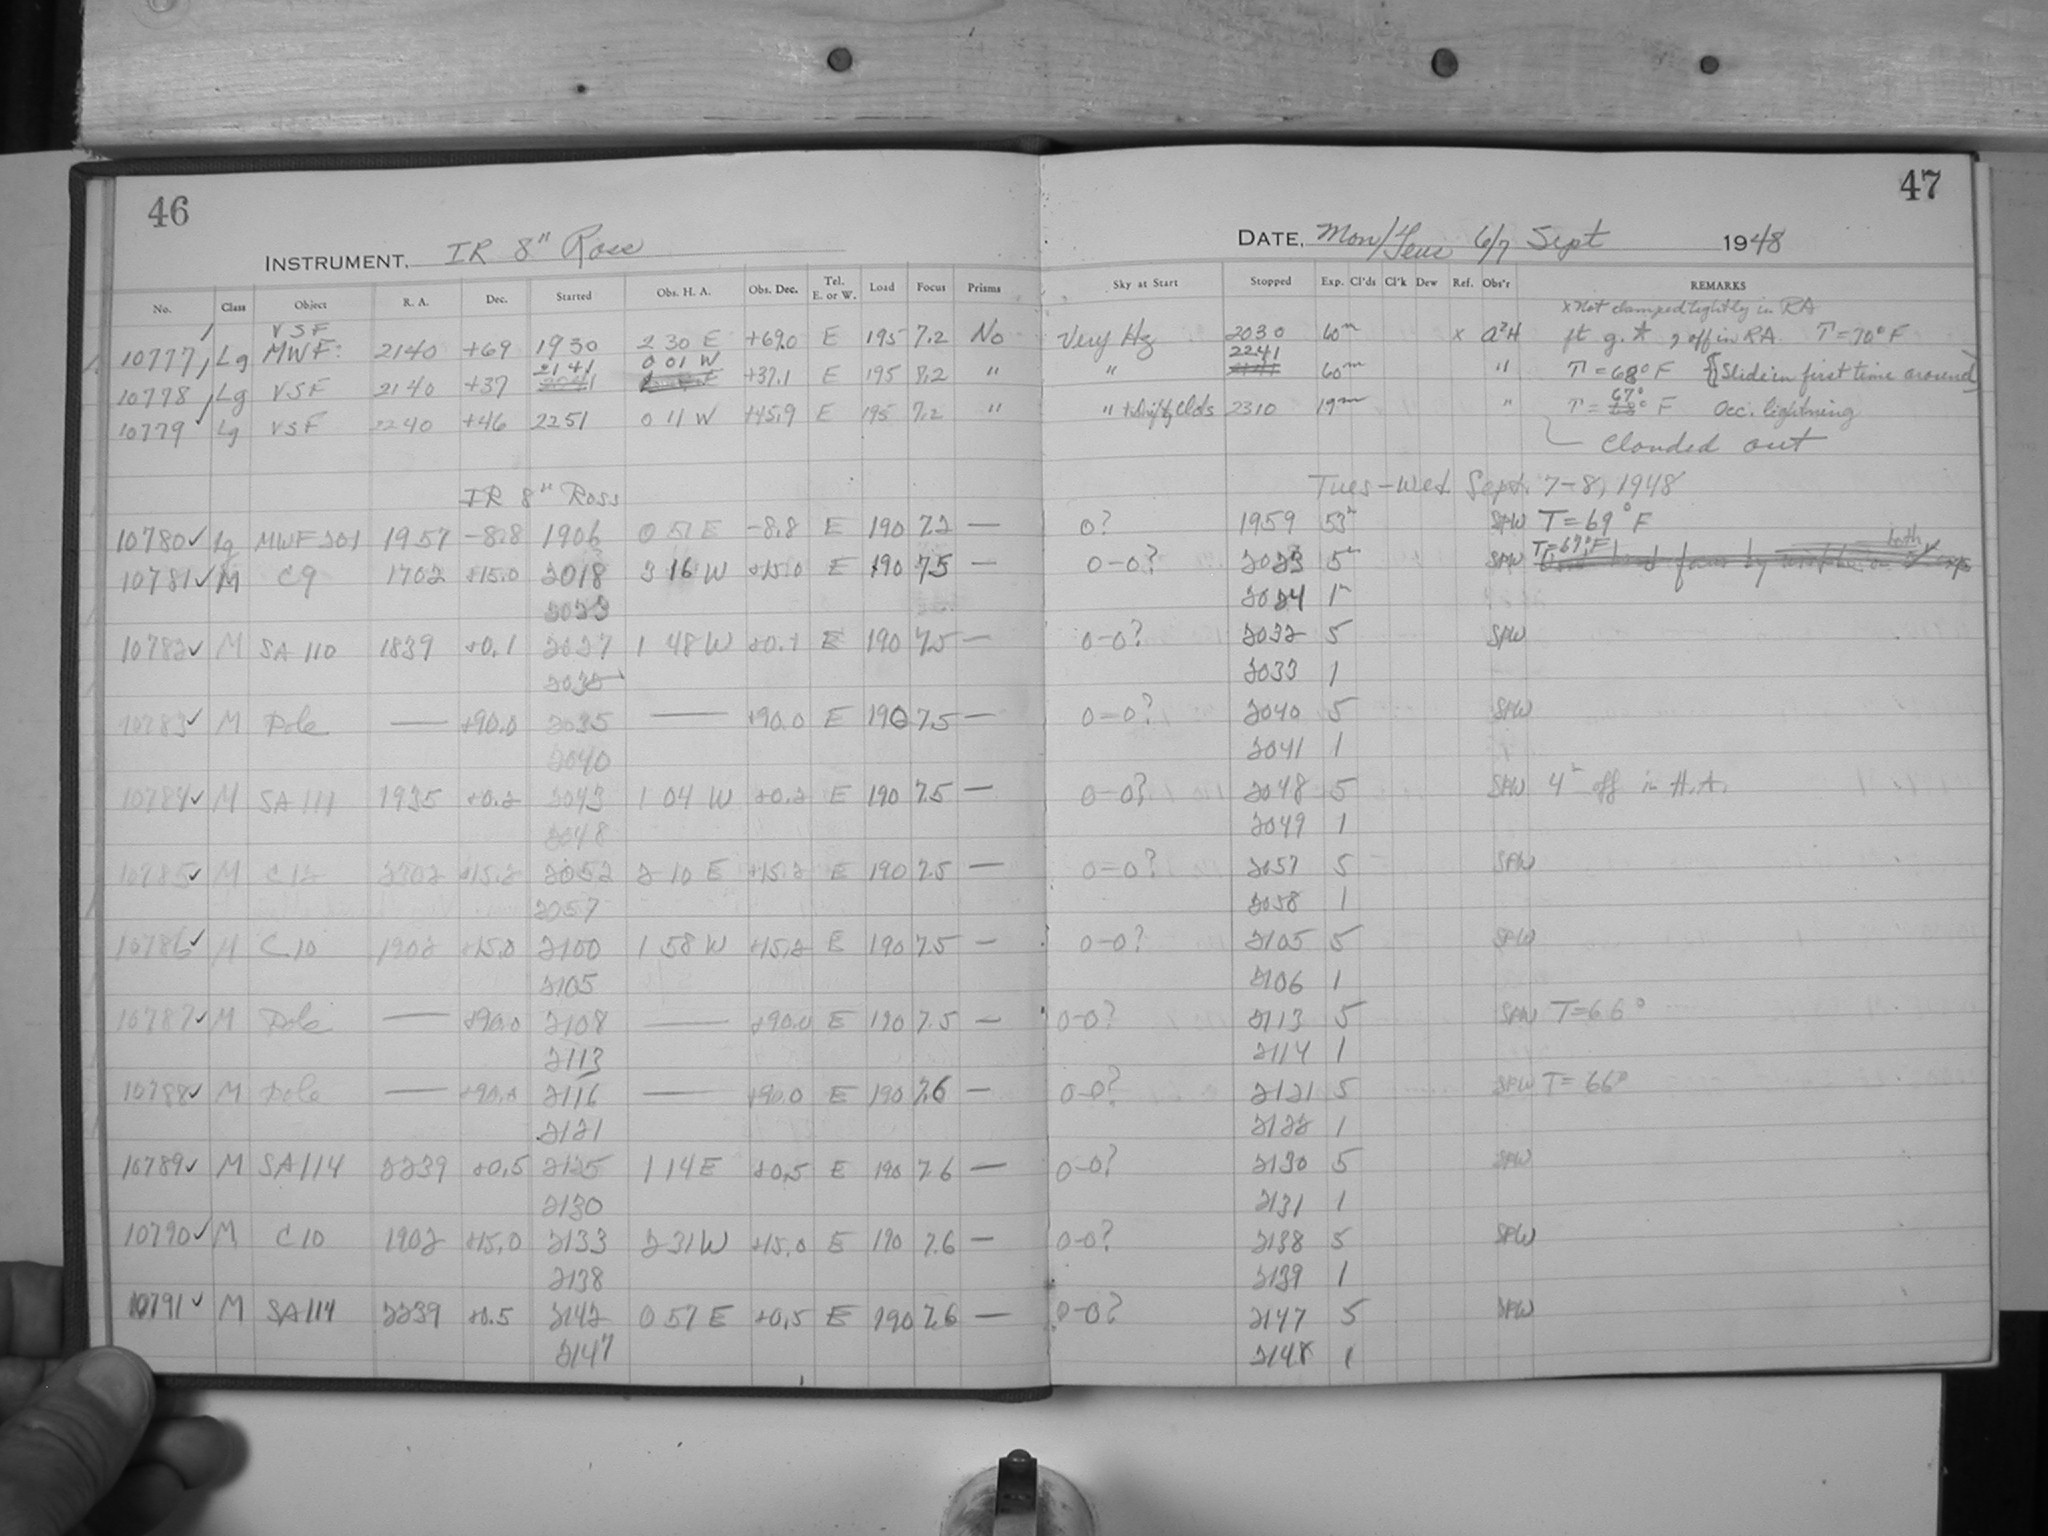 46
47
INSTRUMENT. IR 8" Ross
DATE, Mon/Tues 6/7 Sept 1948
No. Class Object R. A. Dec. Started Obs. H. A. Obs. Dec. Tel. E. or W. Load Focus Prisms Sky at Start Stopped Exp. Cl'ds Cl'k Dew Ref. Obs'r REMARKS
x Not clamped tightly in RA
10777 Lg VSF MWF: 2140 +69 1930 2 30 E +69.0 E 195 7.2 No Very Hz 2030 60m x a²H ft g. * off in RA. T=70°F
10778 Lg VSF 2140 +37 2141 0 01 W +37.1 E 195 7.2 " " 2241 60m " T=68°F {Slide in first time around}
10779 Lg VSF 2240 +46 2251 0 11 W +45.9 E 195 7.2 " " + drifty clds 2310 19m " T= 67° F Occ. lightning
Clouded out
IR 8" Ross Tues-Wed. Sept. 7-8, 1948
10780✓ Lg MWF 201 1957 -8.8 1906 0 51 E -8.8 E 190 7.2 — 0? 1959 53m SPW T=69°F
10781✓ M C9 1702 +15.0 2018 3 16 W +15.0 E 190 7.5 — 0-0? 2023 5m SPW T=67°F
2023 2024 1m
10782✓ M SA 110 1839 +0.1 2027 1 48 W +0.1 E 190 7.5 — 0-0? 2032 5 SPW
2032 2033 1
10783✓ M Pole — +90.0 2035 — +90.0 E 190 7.5 — 0-0? 2040 5 SPW
2040 2041 1
10784✓ M SA 111 1935 +0.2 2043 1 04 W +0.2 E 190 7.5 — 0-0? 2048 5 SPW 4m off in H.A.
2048 2049 1
10785✓ M C12 2302 +15.2 2052 2 10 E +15.2 E 190 7.5 — 0-0? 2057 5 SPW
2057 2058 1
10786✓ M C10 1902 +15.0 2100 1 58 W +15.2 E 190 7.5 — 0-0? 2105 5 SPW
2105 2106 1
10787✓ M Pole — +90.0 2108 — +90.0 E 190 7.5 — 0-0? 2113 5 SPW T=66°
2113 2114 1
10788✓ M Pole — +90.0 2116 — +90.0 E 190 7.6 — 0-0? 2121 5 SPW T=66°
2121 2122 1
10789✓ M SA 114 2239 +0.5 2125 1 14 E +0.5 E 190 7.6 — 0-0? 2130 5 SPW
2130 2131 1
10790✓ M C10 1902 +15.0 2133 2 31 W +15.0 E 190 7.6 — 0-0? 2138 5 SPW
2138 2139 1
10791✓ M SA 114 2239 +0.5 2142 0 57 E +0.5 E 190 7.6 — 0-0? 2147 5 SPW
2147 2148 1